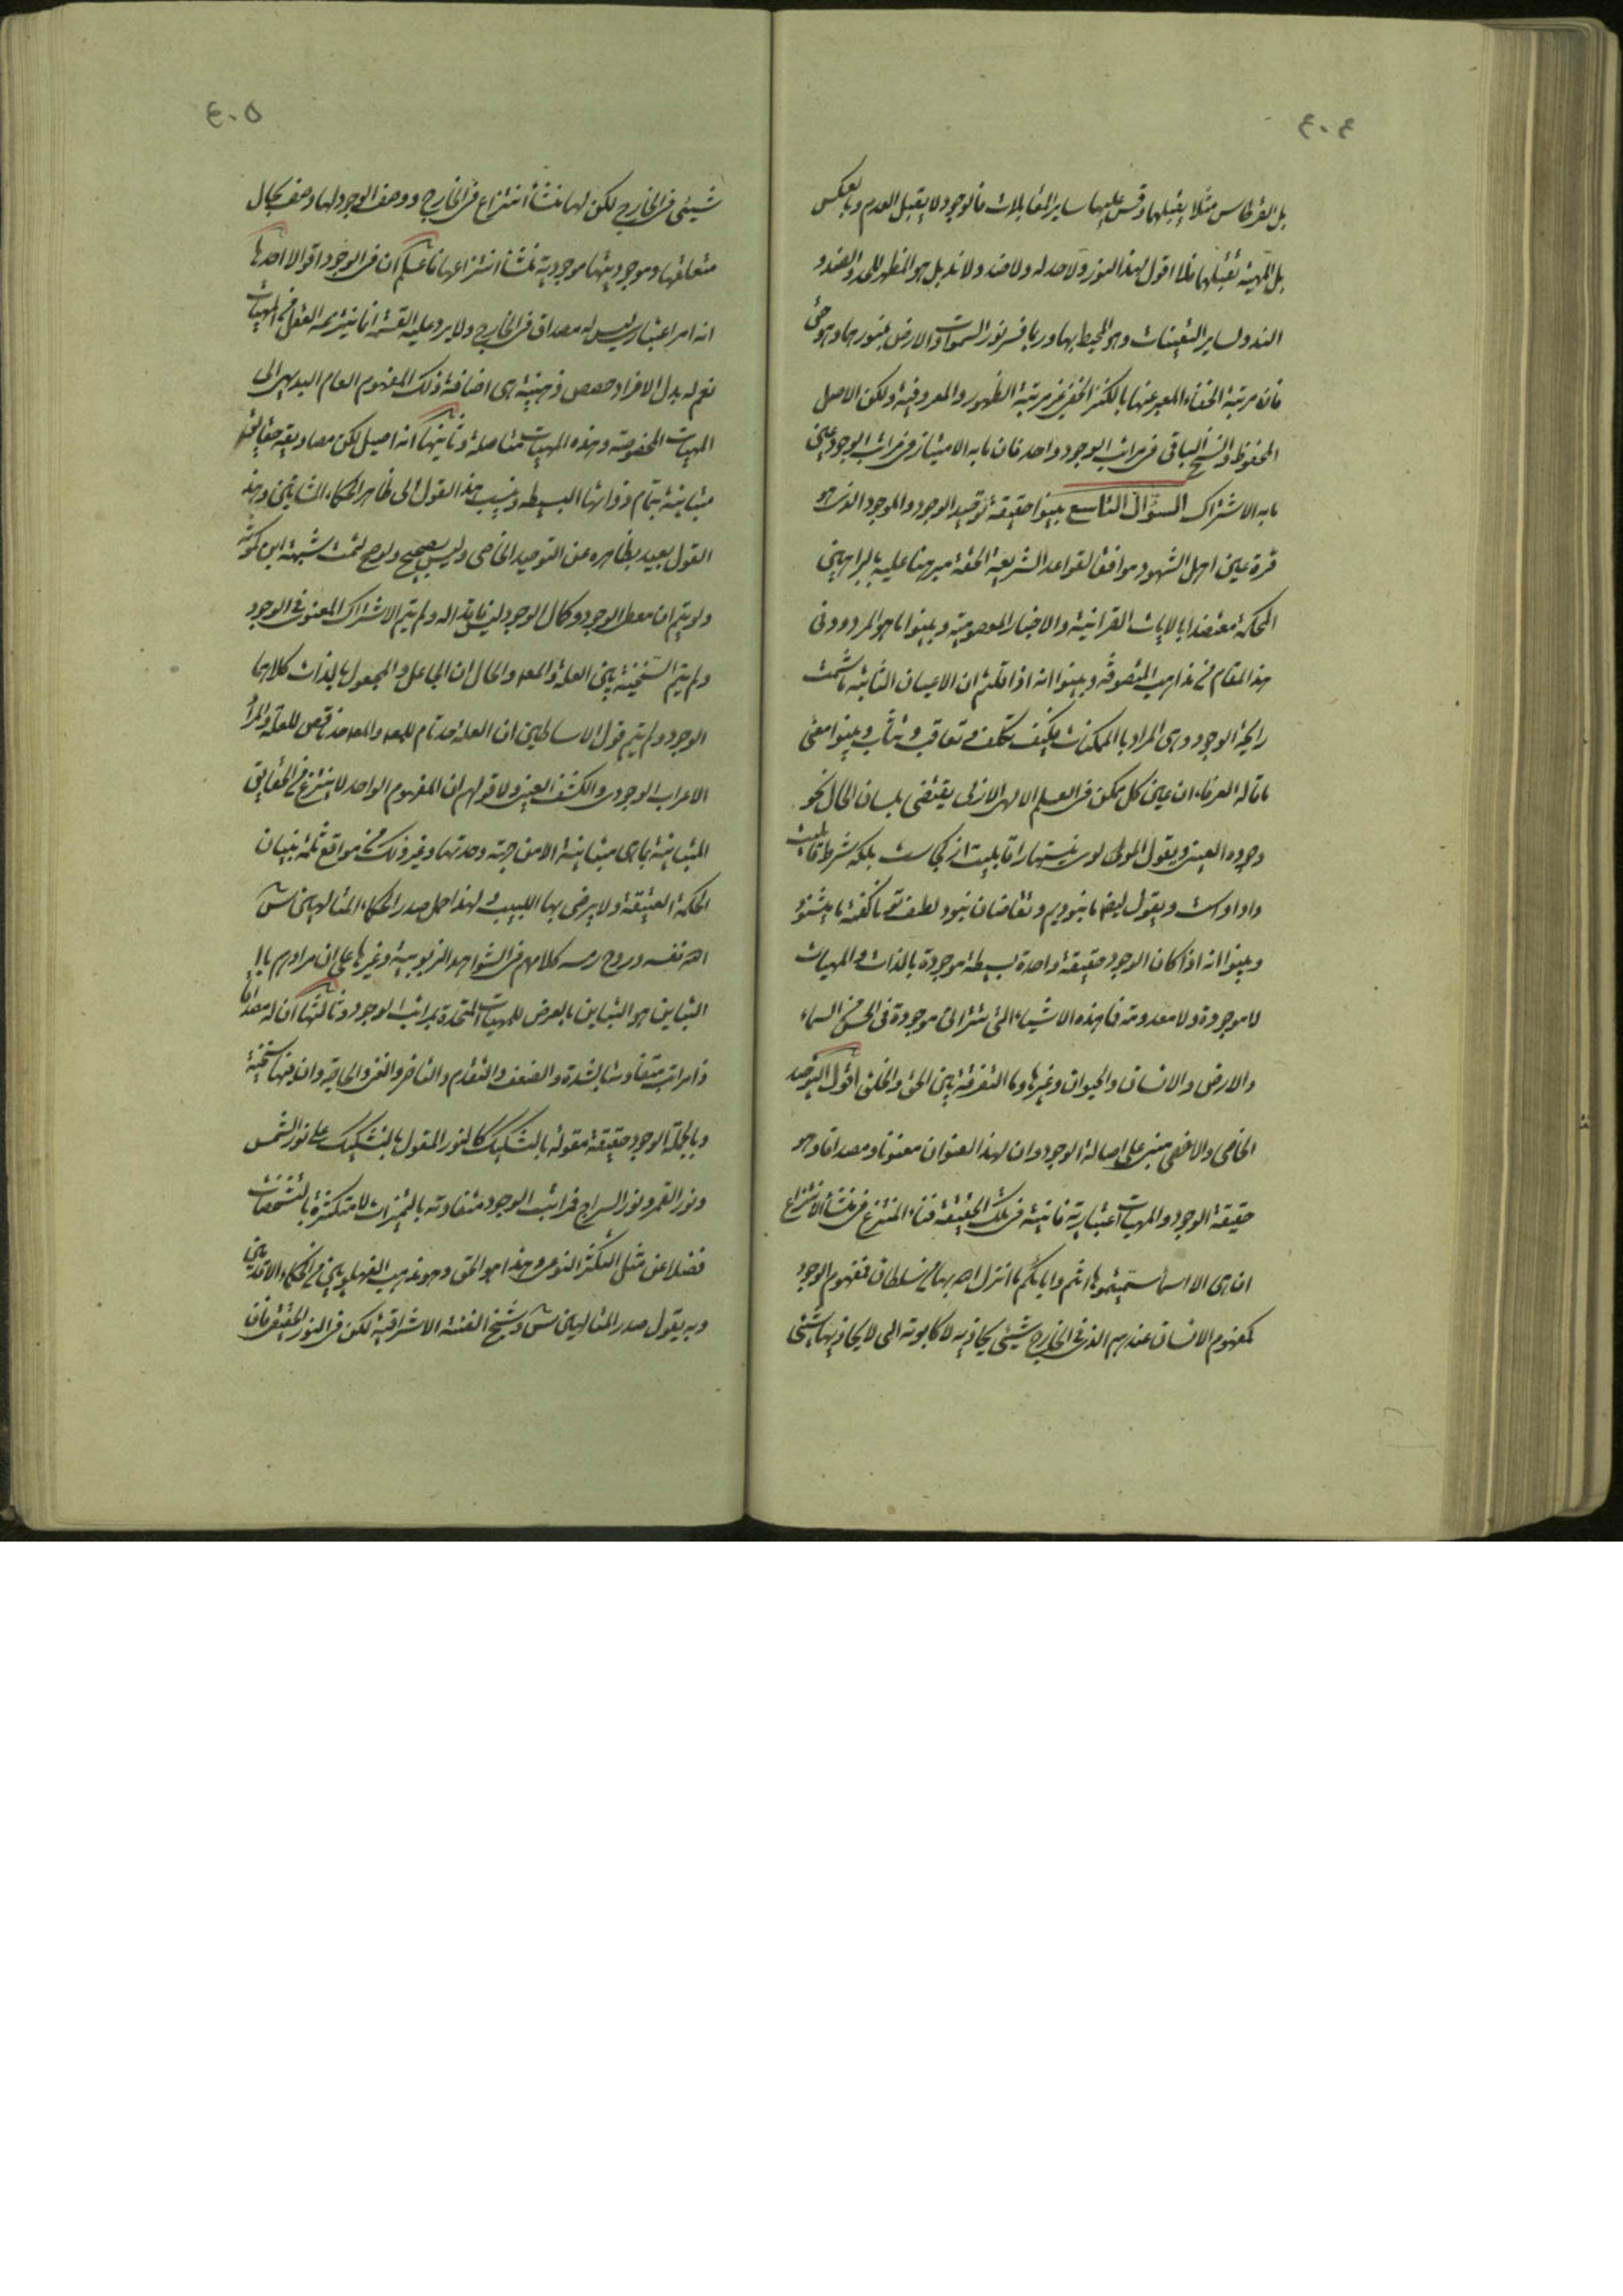 ٤٠٤
بل القرطاس مثلا يقبلهما وقس عليها ساير المقابلات فالوجود لا يقبل العدم وبالعكس
بل المهية تقبلهما فلذا اقول لهذا النور ولا حد له ولا ضد ولا ند بل هو المظهر للحد والضد و
الند ولساير التعينات وهو المحيط بها وربما فسر نور السموات والارض بمنورهما وهو حق
فان مرتبة الخفاء المعبر عنها بالكنز المخفى غير مرتبة الظهور والمعروفية ولكن الاصل
المحفوظ والسنخ الباقى فى مراتب الوجود واحد فان ما به الامتياز فى مراتب الوجود عين
ما به الاشتراك السؤال التاسع بينوا حقيقة توحيد الوجود والموجود الذى هو
قرة عين اهل الشهود موافقا لقواعد الشريعة الحقة مبرهنا عليه بالبراهين
المحكمة معتضدا بالايات القرانية والاخبار المعصومية وبينوا ما هو المردود فى
هذا المقام من مذاهب المتصوفة وبينوا انه اذا قلتم ان الاعيان الثابتة ما شمت
رايحة الوجود وهى المراد بالممكنات فكيف تكلف وتعاقب وتثاب وبينوا معنى
ما قاله العرفاء ان عين كل ممكن فى العلم الالهى الازلى يقتضى بلسان الحال نحو
وجوده العينى ويقول المولوى نيستها را قابليت از كجاست بلكه شرط قابليت
داد اوست ويقول ايضا ما نبوديم وتقاضامان نبود لطف تو ناكفته ما ميشنود
وبينوا انه اذا كان الوجود حقيقة واحدة بسيطة موجودة بالذات والمهيات
لا موجودة ولا معدومة فما هذه الاشياء التى نتراأى موجودة فى الحس من السماء
والارض والانسان والحيوان وغيرها وما التفرقة بين الحق والخلق اقول التوحيد
الخاصى والاخصى مبنى على اصالة الوجود وان لهذا العنوان معنونا ومصداقا وهو
حقيقة الوجود والمهيات اعتبارية فانية فى تلك الحقيقة فناء المنتزع فى منشأ الانتزاع
ان هى الا اسماء سميتموها انتم واباؤكم ما انزل الله بها من سلطان فمفهوم الوجود
كمفهوم الانسان عندهم الذى فى الخارج شيئ يحاذيه لا كالابوة التى لا يحاذيها شيئ
٤٠٥
شيئى فى الخارج لكن لها منشأ انتزاع فى الخارج ووصف الوجود لها وصف بحال
متعلقها وموجوديتها موجودية منشأ انتزاعها فاعلم ان فى الوجود اقوالا احدها
انه امر اعتبارى ليس له مصداق فى الخارج ولا يرد عليه القسمة انما ينتزعه العقل من المهيات
نعم له بدل الافراد حصص ذهنية هى اضافة ذلك المفهوم العام البديهى الى
المهيات المخصوصة وهذه المهيات متاصلة وثانيها انه اصيل لكن مصاديقه حقايق
متباينة بتمام ذواتها البسيطة وينسب هذا القول الى ظاهر الحكماء المشائين وهذا
القول بعيد بظاهره عن التوحيد الخاصى وليس بصحيح ولو صح لتمت شبهة ابن كمونة
ولم يتم ان معطى الوجود وكمال الوجود ليس فاقدا له ولم يتم الاشتراك المعنوى فى الوجود
ولم يتم السنخية بين العلة والمعلول والحال ان الجاعل والمجعول بالذات كلاهما
الوجود ولم يتم قول الاساطين ان العلة حد تام للمعلول والمعلول حد ناقص للعلة والمراد
الاعراب الوجودى والكشف العينى ولا قولهم ان المفهوم الواحد لا ينتزع من الحقايق
المتباينة بما هى متباينة الا من جهة وحدتها وغير ذلك من مواقع ثلمة بنيان
الحكمة العتيقة ولا يرضى بها اللبيب ولهذا حمل صدر الحكماء المتالهين س
الله نفسه وروح رمسه كلامهم فى الشواهد الربوبية وغيرها على ان مرادهم بالـ
التباين هو التباين بالعرض للمهيات المتحدة بمراتب الوجود وثالثها ان له مصداقا
ذا مراتب متفاوتة بالشدة والضعف والتقدم والتاخر والغنى والحاجة وان بينها سنخية
وبالجملة الوجود حقيقة مقولة بالتشكيك كالنور المقول بالتشكيك على نور الشمس
ونور القمر ونور السراج فمراتب الوجود متفاوتة بالتميزات لا متكثرة بالتشخصات
فضلا عن مثل التكثر النوعى وهذا هو الحق وهو مذهب الفهلويين من الحكماء الاقدمين
وبه يقول صدر المتالهين س وشيخ الفئة الاشراقية لكن فى النور الحقيقى فان